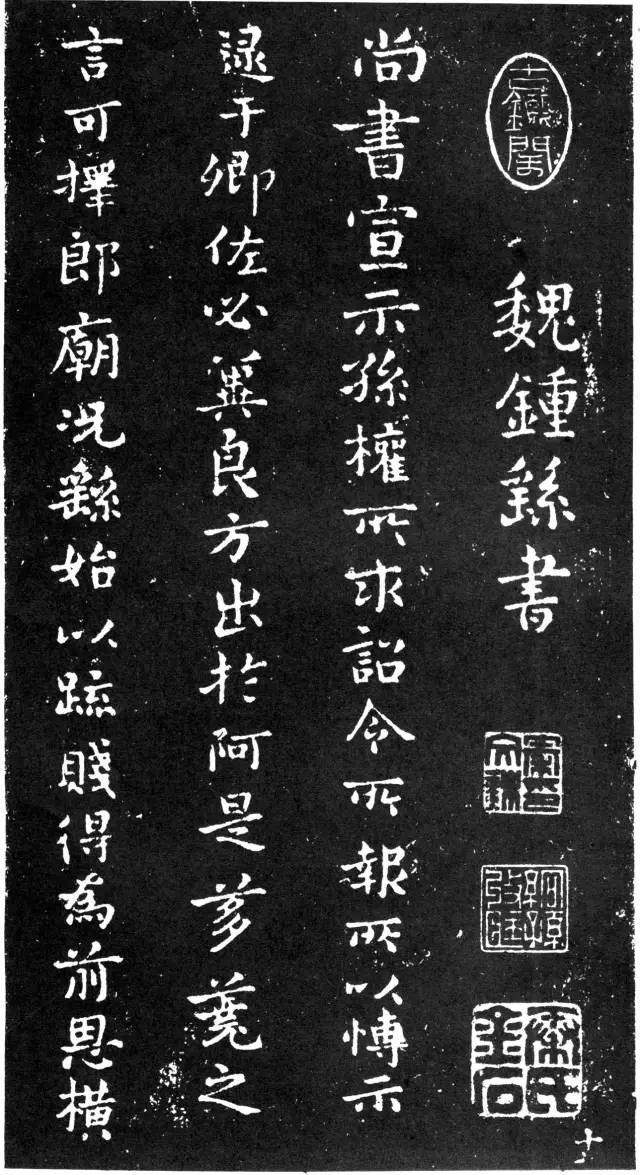 魏鍾繇書
尚書宣示孫權所求詔令所報所以博示
逮于卿佐必冀良方出於阿是芻蕘之
言可擇郎廟况繇始以疏賤得為前恩橫
十